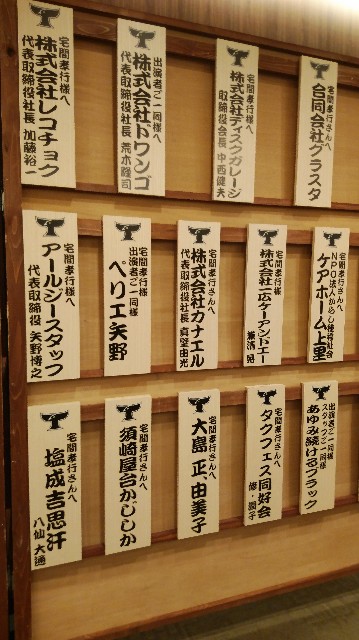 宅間孝行様へ
株式会社レコチョク
代表取締役社長 加藤裕一
出演者ご一同様へ
株式会社ドワンゴ
代表取締役社長 荒木隆司
宅間孝行様へ
株式会社ディスクガレージ
取締役会長 中西健夫
宅間孝行さんへ
合同会社クラスタ
宅間孝行様へ
アールジースタッフ
代表取締役 矢野博之
宅間孝行様
出演者ご一同様
ペリエ矢野
宅間孝行さんへ
株式会社カナエル
代表取締役社長 真壁由光
宅間孝行様へ
株式会社一広ケーアンドエー
宅間孝行さんへ
ケアホーム上里
宅間孝行さんへ
塩成吉思汗
八仙 大通
宅間孝行さんへ
須崎屋台かじしか
宅間孝行さんへ
大島 正、由美子
宅間孝行さんへ
タクフェス同好会
修・潤子
出演者ご一同様
スタッフご一同様へ
あゆみ続けるブラック